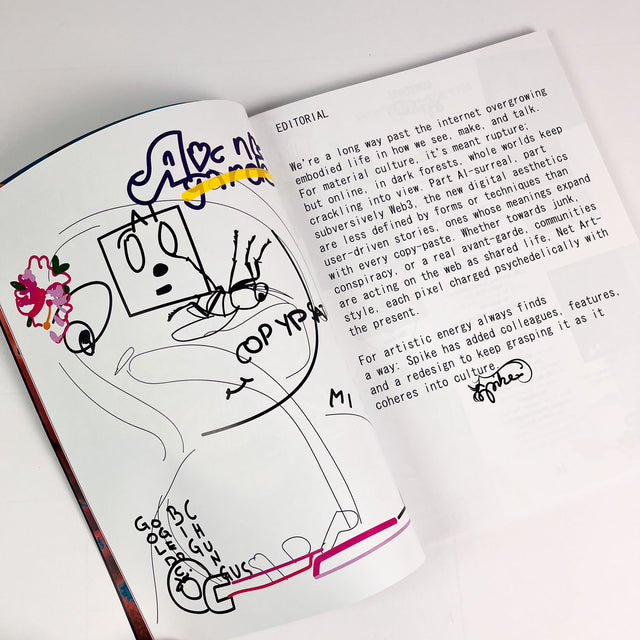 COPYPA
MI
BIG
CHUNGUS
EDITORIAL
We're a long way past the internet overgrowing
embodied life in how we see, make, and talk.
For material culture, it's meant rupture;
but online, in dark forests, whole worlds keep
crackling into view. Part AI-surreal, part
subversively Web3, the new digital aesthetics
are less defined by forms or techniques than
user-driven stories, ones whose meanings expand
with every copy-paste. Whether towards junk,
conspiracy, or a real avant-garde, communities
are acting on the web as shared life. Net Art-
style, each pixel charged psychedelically with
the present.
For artistic energy always finds
a way: Spike has added colleagues, features,
and a redesign to keep grasping it as it
coheres into culture.
Spike